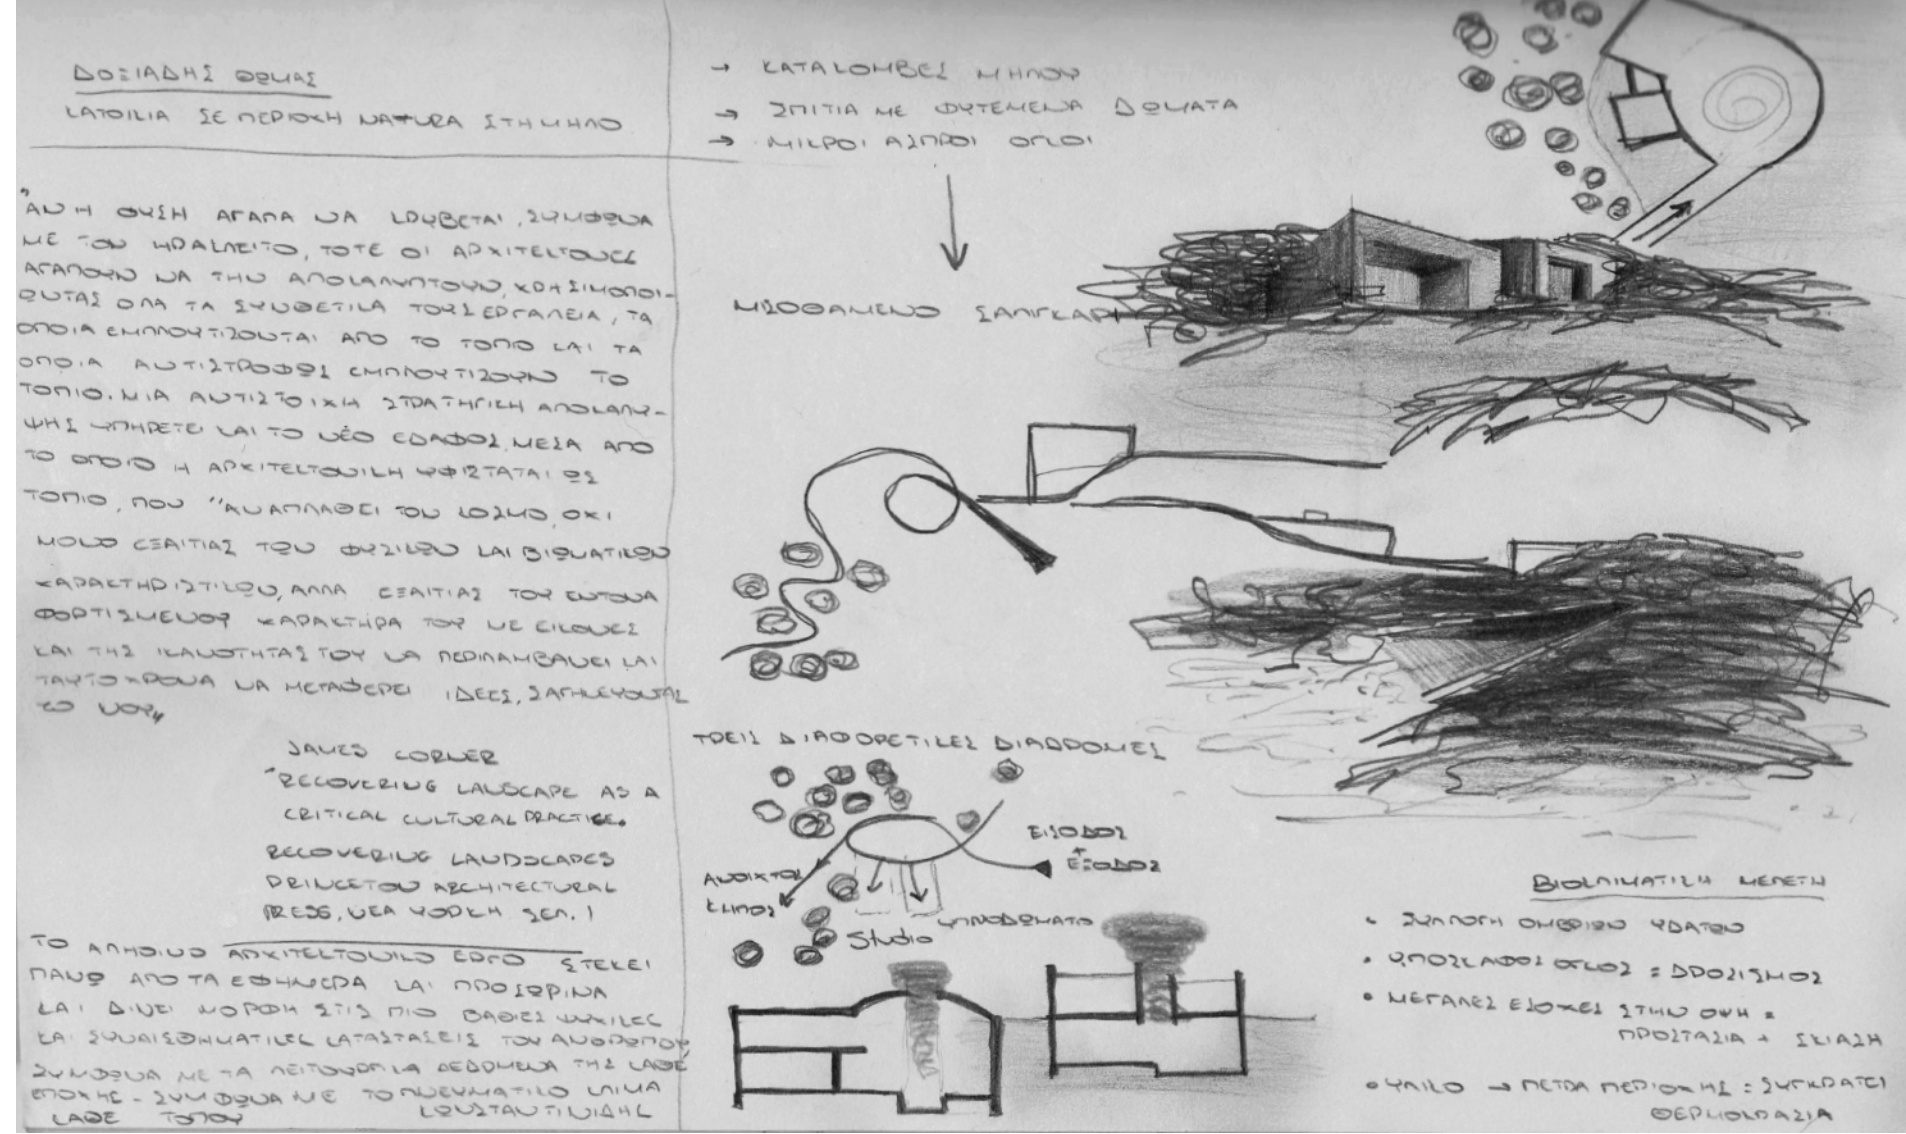 ΔΟΞΙΑΔΗΣ ΘΩΜΑΣ
ΚΑΤΟΙΚΙΑ ΣΕ ΠΕΡΙΟΧΗ NATURA ΣΤΗ ΜΗΛΟ
"ΑΝ Η ΦΥΣΗ ΑΓΑΠΑ ΝΑ ΚΡΥΒΕΤΑΙ, ΣΥΜΦΩΝΑ
ΜΕ ΤΟΝ ΗΡΑΚΛΕΙΤΟ, ΤΟΤΕ ΟΙ ΑΡΧΙΤΕΚΤΟΝΕΣ
ΑΓΑΠΟΥΝ ΝΑ ΤΗΝ ΑΠΟΚΑΛΥΠΤΟΥΝ, ΧΡΗΣΙΜΟΠΟΙ-
ΩΝΤΑΣ ΟΛΑ ΤΑ ΣΥΝΘΕΤΙΚΑ ΤΟΥΣ ΕΡΓΑΛΕΙΑ, ΤΑ
ΟΠΟΙΑ ΕΜΠΛΟΥΤΙΖΟΝΤΑΙ ΑΠΟ ΤΟ ΤΟΠΙΟ ΚΑΙ ΤΑ
ΟΠΟΙΑ ΑΝΤΙΣΤΡΟΦΩΣ ΕΜΠΛΟΥΤΙΖΟΥΝ ΤΟ
ΤΟΠΙΟ. ΜΙΑ ΑΝΤΙΣΤΟΙΧΗ ΣΤΡΑΤΗΓΙΚΗ ΑΠΟΚΑΛΥ-
ΨΗΣ ΥΠΗΡΕΤΕΙ ΚΑΙ ΤΟ ΝΕΟ ΕΔΑΦΟΣ, ΜΕΣΑ ΑΠΟ
ΤΟ ΟΠΟΙΟ Η ΑΡΧΙΤΕΚΤΟΝΙΚΗ ΥΦΙΣΤΑΤΑΙ ΩΣ
ΤΟΠΙΟ, ΠΟΥ "ΑΝΑΠΛΑΘΕΙ ΤΟΝ ΚΟΣΜΟ, ΟΧΙ
ΜΟΝΟ ΕΞΑΙΤΙΑΣ ΤΩΝ ΦΥΣΙΚΩΝ ΚΑΙ ΒΙΩΜΑΤΙΚΩΝ
ΧΑΡΑΚΤΗΡΙΣΤΙΚΩΝ, ΑΛΛΑ ΕΞΑΙΤΙΑΣ ΤΟΥ ΕΝΤΟΝΑ
ΦΟΡΤΙΣΜΕΝΟΥ ΧΑΡΑΚΤΗΡΑ ΤΟΥ ΜΕ ΕΙΚΟΝΕΣ
ΚΑΙ ΤΗΣ ΙΚΑΝΟΤΗΤΑΣ ΤΟΥ ΝΑ ΠΕΡΙΛΑΜΒΑΝΕΙ ΚΑΙ
ΤΑΥΤΟΧΡΟΝΑ ΝΑ ΜΕΤΑΦΕΡΕΙ ΙΔΕΕΣ, ΣΑΓΗΝΕΥΟΝΤΑΣ
ΤΟ ΝΟΥ"
JAMES CORNER
"RECOVERING LANDSCAPE AS A
CRITICAL CULTURAL PRACTICE.
RECOVERING LANDSCAPES
PRINCETON ARCHITECTURAL
PRESS, ΝΕΑ ΥΟΡΚΗ ΣΕΛ. 1
ΤΟ ΑΛΗΘΙΝΟ ΑΡΧΙΤΕΚΤΟΝΙΚΟ ΕΡΓΟ ΣΤΕΚΕΙ
ΠΑΝΩ ΑΠΟ ΤΑ ΕΦΗΜΕΡΑ ΚΑΙ ΠΡΟΣΩΡΙΝΑ
ΚΑΙ ΔΙΝΕΙ ΜΟΡΦΗ ΣΤΙΣ ΠΙΟ ΒΑΘΙΕΣ ΨΥΧΙΚΕΣ
ΚΑΙ ΣΥΝΑΙΣΘΗΜΑΤΙΚΕΣ ΚΑΤΑΣΤΑΣΕΙΣ ΤΟΥ ΑΝΘΡΩΠΟΥ
ΣΥΜΦΩΝΑ ΜΕ ΤΑ ΛΕΙΤΟΥΡΓΙΚΑ ΔΕΔΟΜΕΝΑ ΤΗΣ ΚΑΘΕ
ΕΠΟΧΗΣ - ΣΥΜΦΩΝΑ ΜΕ ΤΟ ΠΝΕΥΜΑΤΙΚΟ ΚΛΙΜΑ
ΚΑΘΕ ΤΟΠΟΥ ΚΩΝΣΤΑΝΤΙΝΙΔΗΣ
→ ΚΑΤΑΚΟΜΒΕΣ ΜΗΛΟΥ
→ ΣΠΙΤΙΑ ΜΕ ΦΥΤΕΜΕΝΑ ΔΩΜΑΤΑ
→ ΜΙΚΡΟΙ ΑΣΠΡΟΙ ΟΓΚΟΙ
ΜΙΣΟΘΑΜΕΝΟ ΣΑΛΙΓΚΑΡΙ
ΤΡΕΙΣ ΔΙΑΦΟΡΕΤΙΚΕΣ ΔΙΑΔΡΟΜΕΣ
ΕΙΣΟΔΟΣ
+
ΕΞΟΔΟΣ
ΑΝΟΙΧΤΟΣ
ΚΗΠΟΣ
ΥΠΝΟΔΩΜΑΤΟ
Studio
ΒΙΟΚΛΙΜΑΤΙΚΗ ΜΕΛΕΤΗ
• ΣΥΛΛΟΓΗ ΟΜΒΡΙΩΝ ΥΔΑΤΩΝ
• ΥΠΟΣΚΑΦΟΣ ΟΓΚΟΣ = ΔΡΟΣΙΣΜΟΣ
• ΜΕΓΑΛΕΣ ΕΣΟΧΕΣ ΣΤΗΝ ΟΨΗ =
ΠΡΟΣΤΑΣΙΑ + ΣΚΙΑΣΗ
• ΥΛΙΚΟ → ΠΕΤΡΑ ΠΕΡΙΟΧΗΣ = ΣΥΓΚΡΑΤΕΙ
ΘΕΡΜΟΚΡΑΣΙΑ